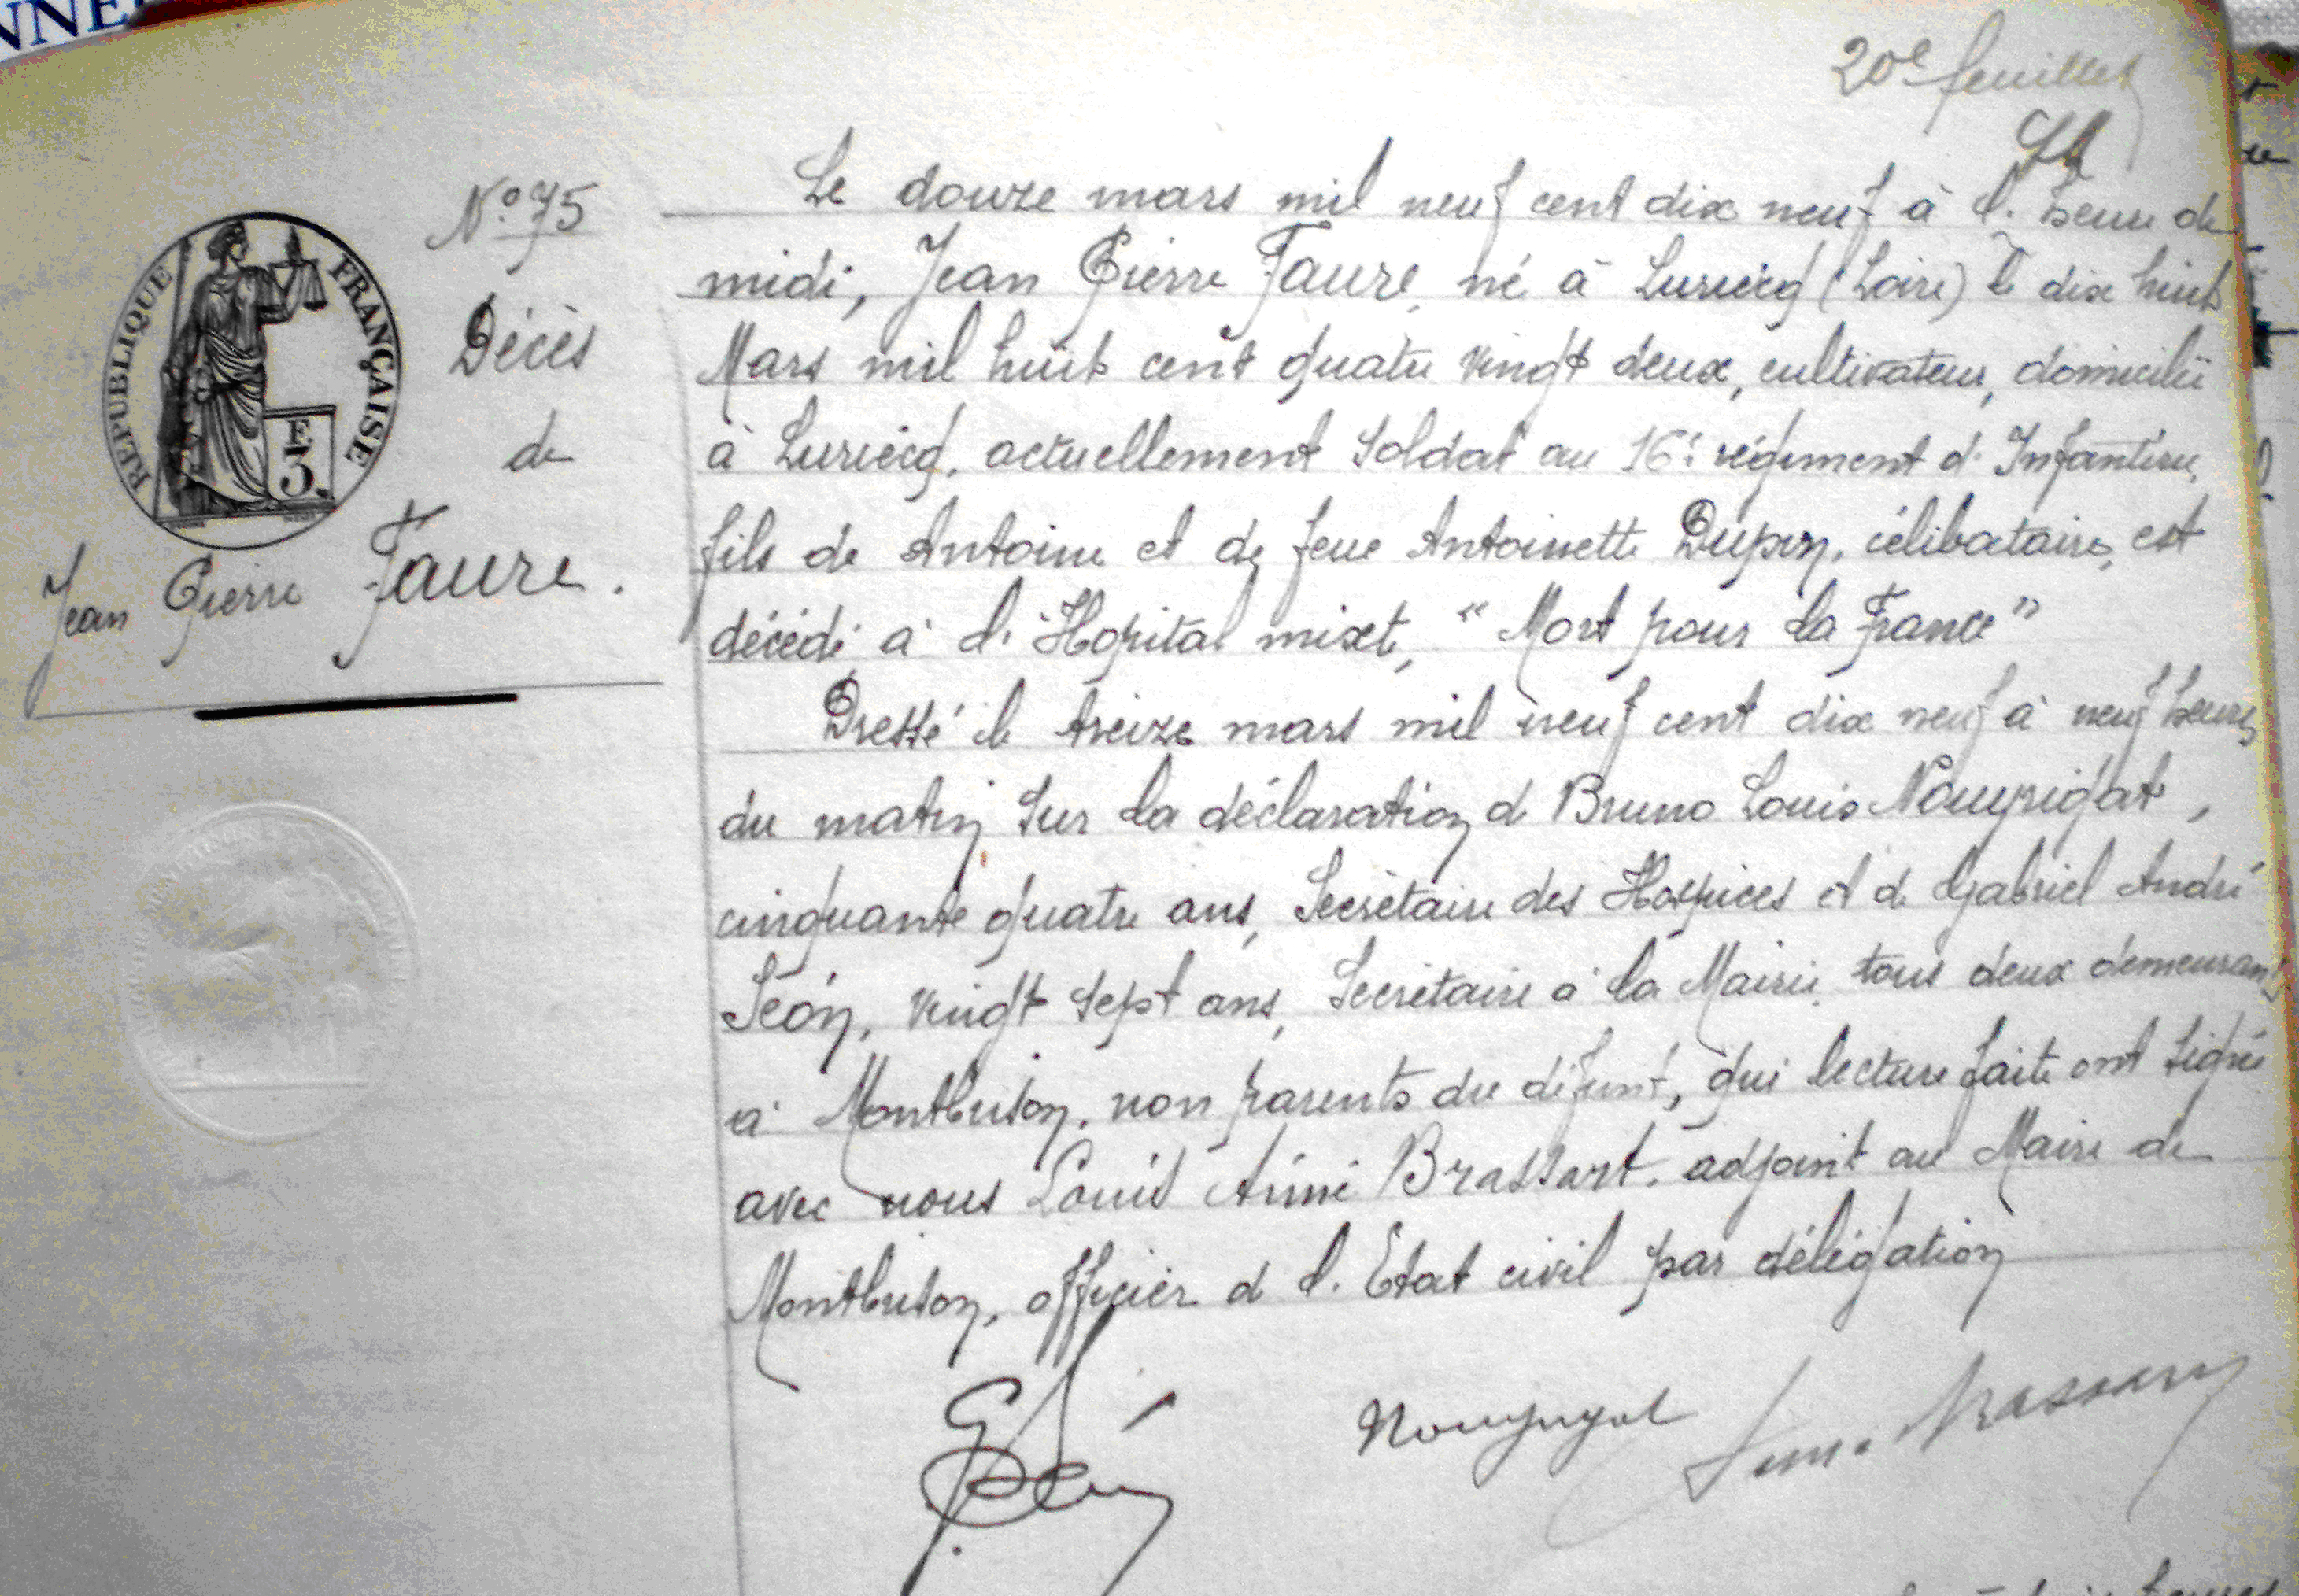 20e feuillet
N° 75
Décès
de
Jean Pierre Faure.
REPUBLIQUE FRANÇAISE
F
3.
Le douze mars mil neuf cent dix neuf à l'heure de
midi, Jean Pierre Faure, né à Luriecq (Loire) le dix huit
Mars mil huit cent quatre vingt deux, cultivateur, domicilié
à Luriecq, actuellement soldat au 16e régiment d'Infanterie,
fils de Antoine et de feue Antoinette Dupin, célibataire, est
décédé à l'Hopital mixte, "Mort pour la France"
Dressé le treize mars mil neuf cent dix neuf à neuf heures
du matin sur la déclaration de Bruno Louis Nourrigat,
cinquante quatre ans, Secrétaire des Hospices et de Gabriel André
Séon, vingt sept ans, Secrétaire à la Mairie, tous deux demeurant
à Montbrison, non parents du défunt, qui lecture faite ont signé
avec nous Louis Aimé Brassart, adjoint au Maire de
Montbrison, officier de l'Etat civil par délégation